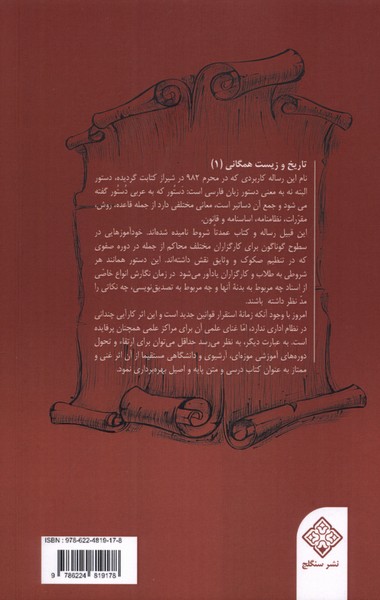 تاریخ و زیست همگانی (۱)
نام این رساله کاربردی که در محرم ۹۸۲ در شیراز کتابت گردیده، دستور
البته نه به معنی دستور زبان فارسی است: دستور که به عربی دُستُور گفته
می شود و جمع آن دساتیر است، معانی مختلفی دارد از جمله قاعده، روش،
مقررات، نظامنامه، اساسنامه و قانون.
این قبیل رساله و کتاب عمدتاً شروط نامیده شده‌اند. خودآموزهایی در
سطوح گوناگون برای کارگزاران مختلف محاکم از جمله در دوره صفوی
که در تنظیم صکوک و وثایق نقش داشته‌اند. این دستور همانند هر
شروطی به طلاب و کارگزاران یادآور می‌شود در زمان نگارش انواع خاصی
از اسناد چه مربوط به بدنهٔ آنها و چه مربوط به تصدیق‌نویسی، چه نکاتی را
مدّ نظر داشته باشند.
امروز با وجود آنکه زمانهٔ استقرار قوانین جدید است و این اثر کارآیی چندانی
در نظام اداری ندارد، امّا غنای علمی آن برای مراکز علمی همچنان پرفایده
است. به عبارت دیگر، به نظر می‌رسد حداقل می‌توان برای ارتقاء و تحول
دوره‌های آموزشی موزه‌ای، آرشیوی و دانشگاهی مستقیما از آن اثر غنی و
ممتاز به عنوان کتاب درسی و متن پایه و اصیل بهره‌برداری نمود.
ISBN : 978-622-4819-17-8
9 786224 819178
نشر سنگلج